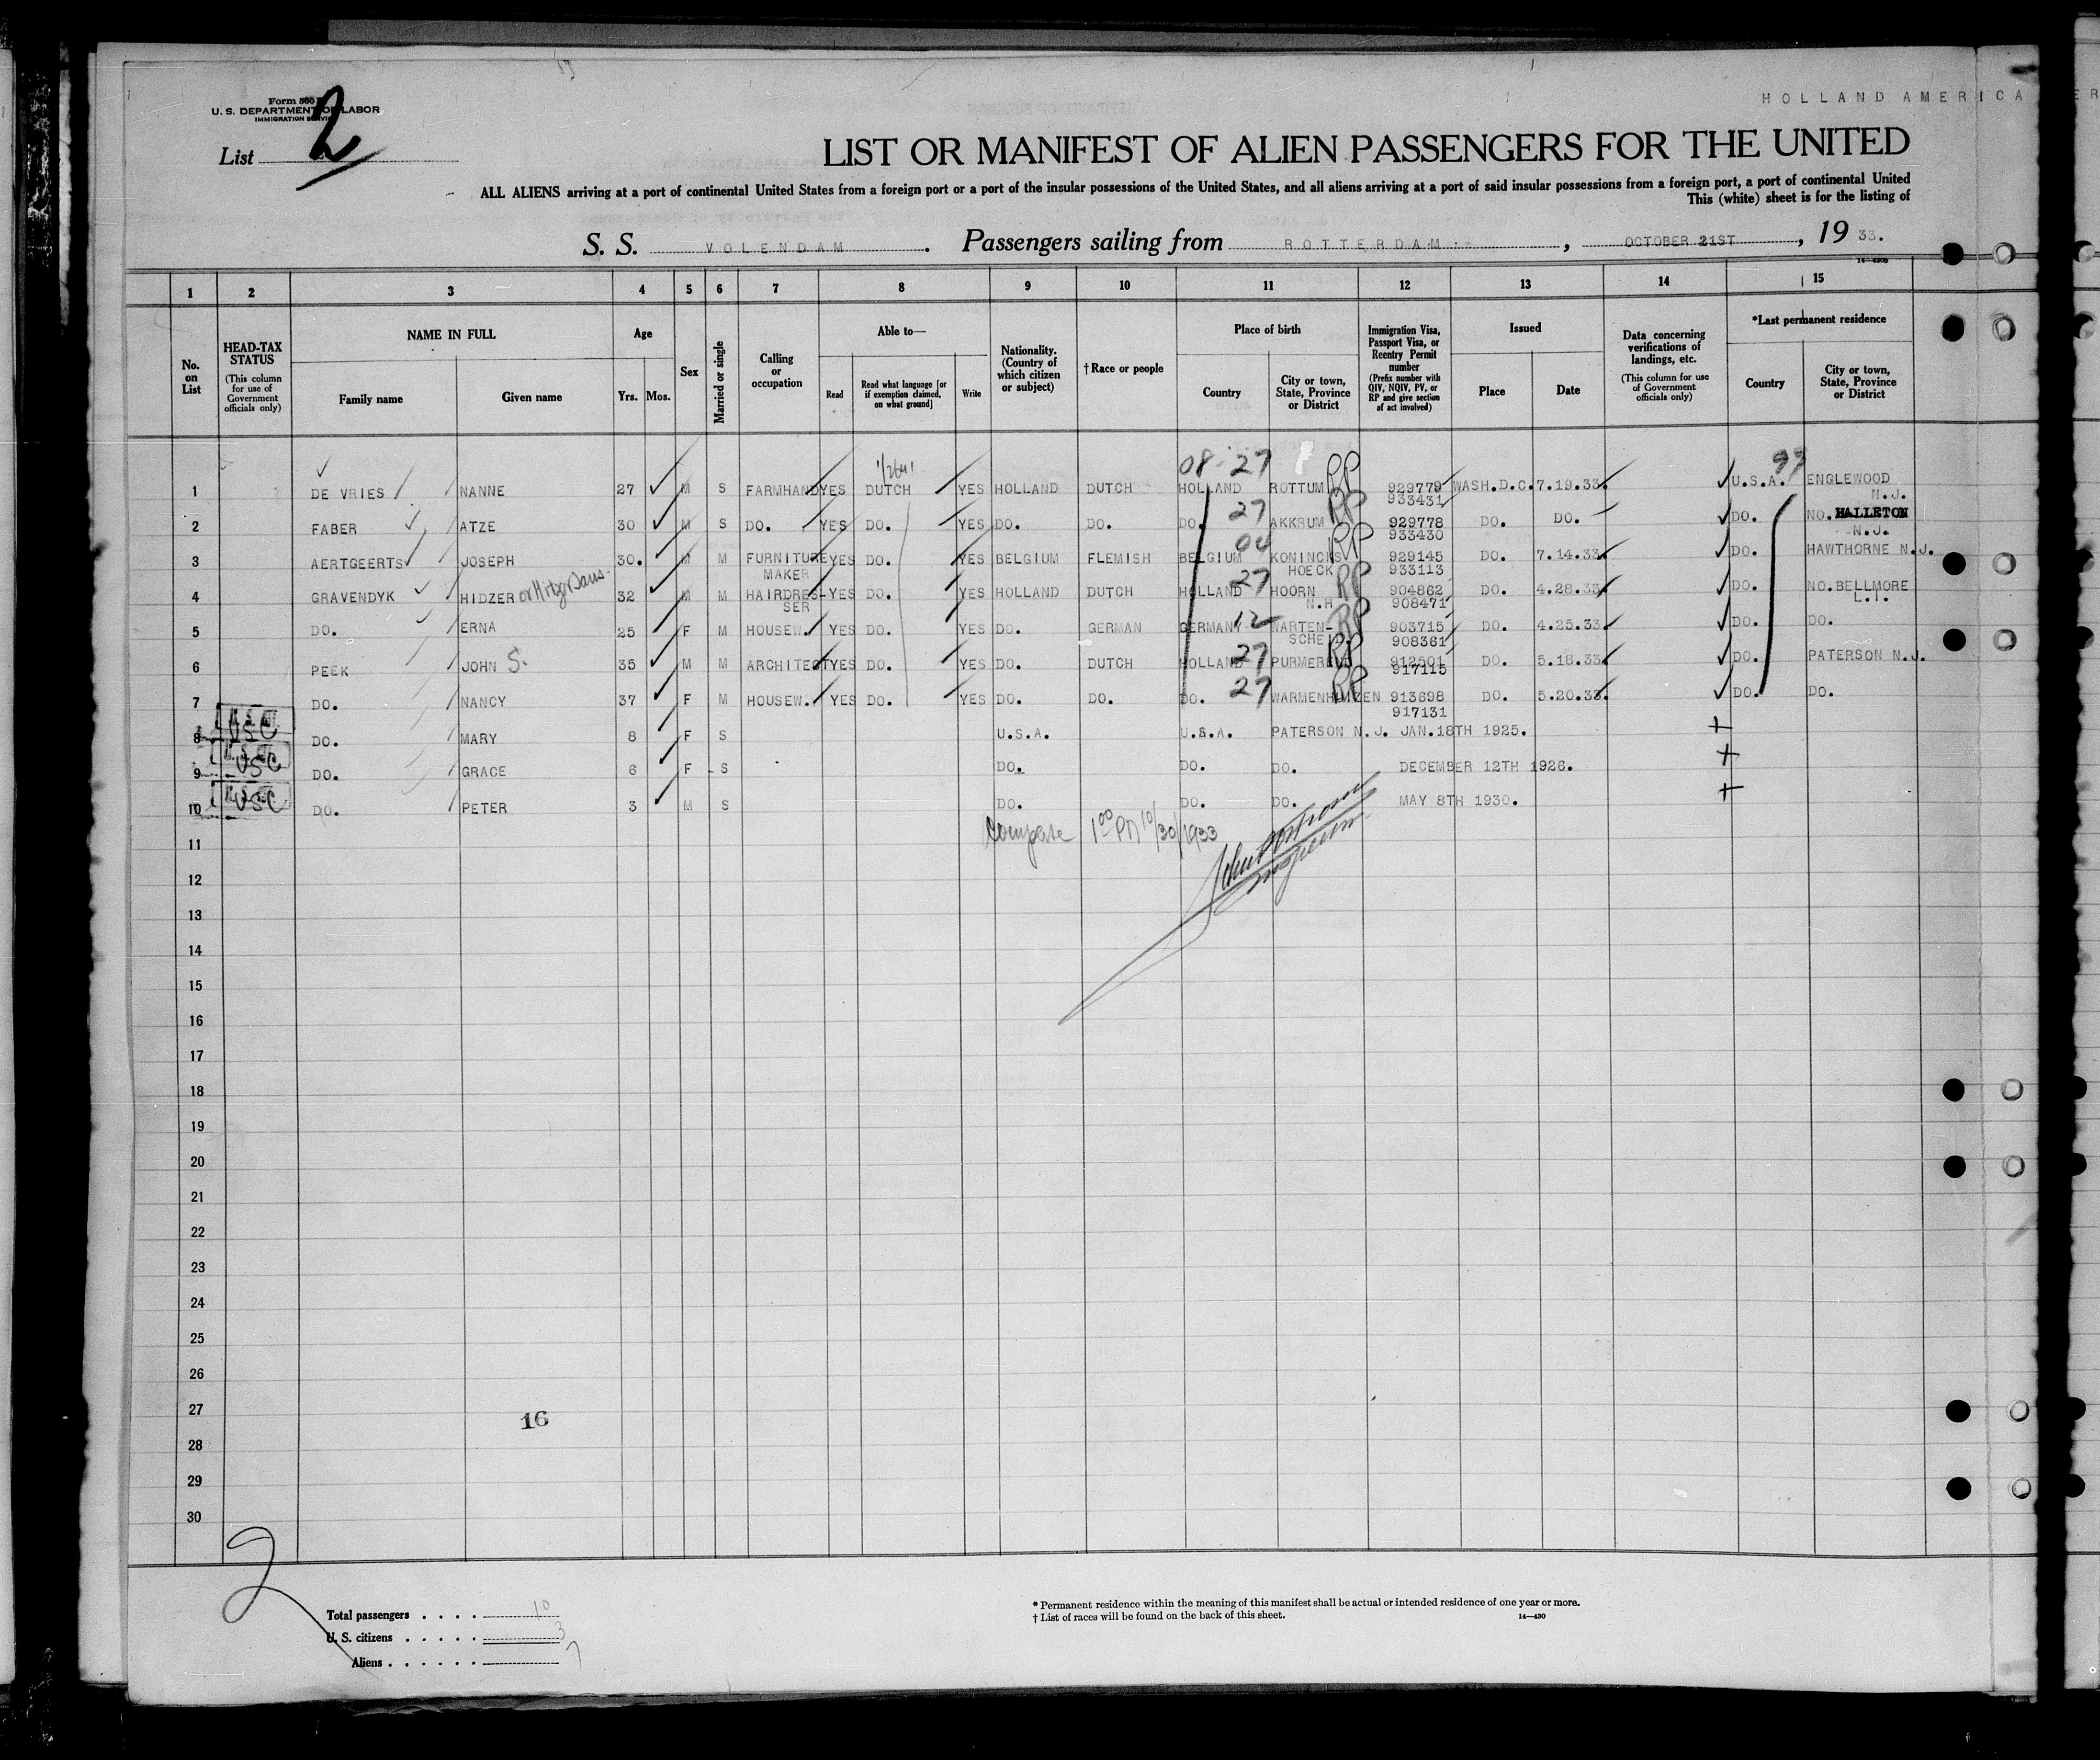 HOLLAND AMERICA
Form 500
U. S. DEPARTMENT OF LABOR
IMMIGRATION SERVICE
List 2
LIST OR MANIFEST OF ALIEN PASSENGERS FOR THE UNITED
ALL ALIENS arriving at a port of continental United States from a foreign port or a port of the insular possessions of the United States, and all aliens arriving at a port of said insular possessions from a foreign port, a port of continental United
This (white) sheet is for the listing of
S. S. VOLENDAM. Passengers sailing from ROTTERDAM, OCTOBER 21ST, 19 33.
1 2 3 4 5 6 7 8 9 10 11 12 13 14 15
No. on List
HEAD-TAX STATUS (This column for use of Government officials only)
NAME IN FULL Family name Given name
Age Yrs. Mos.
Sex
Married or single
Calling or occupation
Able to— Read Read what language [or if exemption claimed, on what ground] Write
Nationality. (Country of which citizen or subject)
†Race or people
Place of birth Country City or town, State, Province or District
Immigration Visa, Passport Visa, or Reentry Permit number (Prefix number with QIV, NQIV, PV, or RP and give section of act involved)
Issued Place Date
Data concerning verifications of landings, etc. (This column for use of Government officials only)
*Last permanent residence Country City or town, State, Province or District
08 27 99
1 DE VRIES NANNE 27 M S FARMHAND YES DUTCH YES HOLLAND DUTCH HOLLAND ROTTUM RP 929779 933431 WASH.D.C. 7.19.33. U.S.A. ENGLEWOOD N.J.
2 FABER ATZE 30 M S DO. YES DO. YES DO. DO. DO. 27 AKKRUM RP 929778 933430 DO. DO. DO. NO. HALLETON N.J.
3 AERTGEERTS JOSEPH 30. M M FURNITURE MAKER YES DO. YES BELGIUM FLEMISH BELGIUM 04 KONINCKS HOECK RP 929145 933113 DO. 7.14.33. DO. HAWTHORNE N.J.
4 GRAVENDYK HIDZER or 32 M M HAIRDRES-SER YES DO. YES HOLLAND DUTCH HOLLAND 27 HOORN N.H. RP 904862 908471 DO. 4.28.33. DO. NO.BELLMORE L.I.
5 DO. ERNA 25 F M HOUSEW. YES DO. YES DO. GERMAN GERMANY 12 WARTEN-SCHE RP 903715 908361 DO. 4.25.33. DO. DO.
6 PEEK JOHN S. 35 M M ARCHITECT YES DO. YES DO. DUTCH HOLLAND 27 PURMEREND RP 912501 917115 DO. 5.18.33. DO. PATERSON N.J.
7 DO. NANCY 37 F M HOUSEW. YES DO. YES DO. DO. DO. 27 WARMENHUIZEN RP 913698 917131 DO. 5.20.33. DO. DO.
8 USC DO. MARY 8 F S U.S.A. U.S.A. PATERSON N.J. JAN.18TH 1925.
9 USC DO. GRACE 6 F S DO. DO. DO. DECEMBER 12TH 1926.
10 USC DO. PETER 3 M S DO. DO. DO. MAY 8TH 1930.
1 00 PM 10/30/1933
11
12
13
14
15
16
17
18
19
20
21
22
23
24
25
26
27
16
28
29
30
2
Total passengers . . . . 10
U. S. citizens . . . . . 3
Aliens . . . . . . 7
* Permanent residence within the meaning of this manifest shall be actual or intended residence of one year or more.
† List of races will be found on the back of this sheet. 14—430